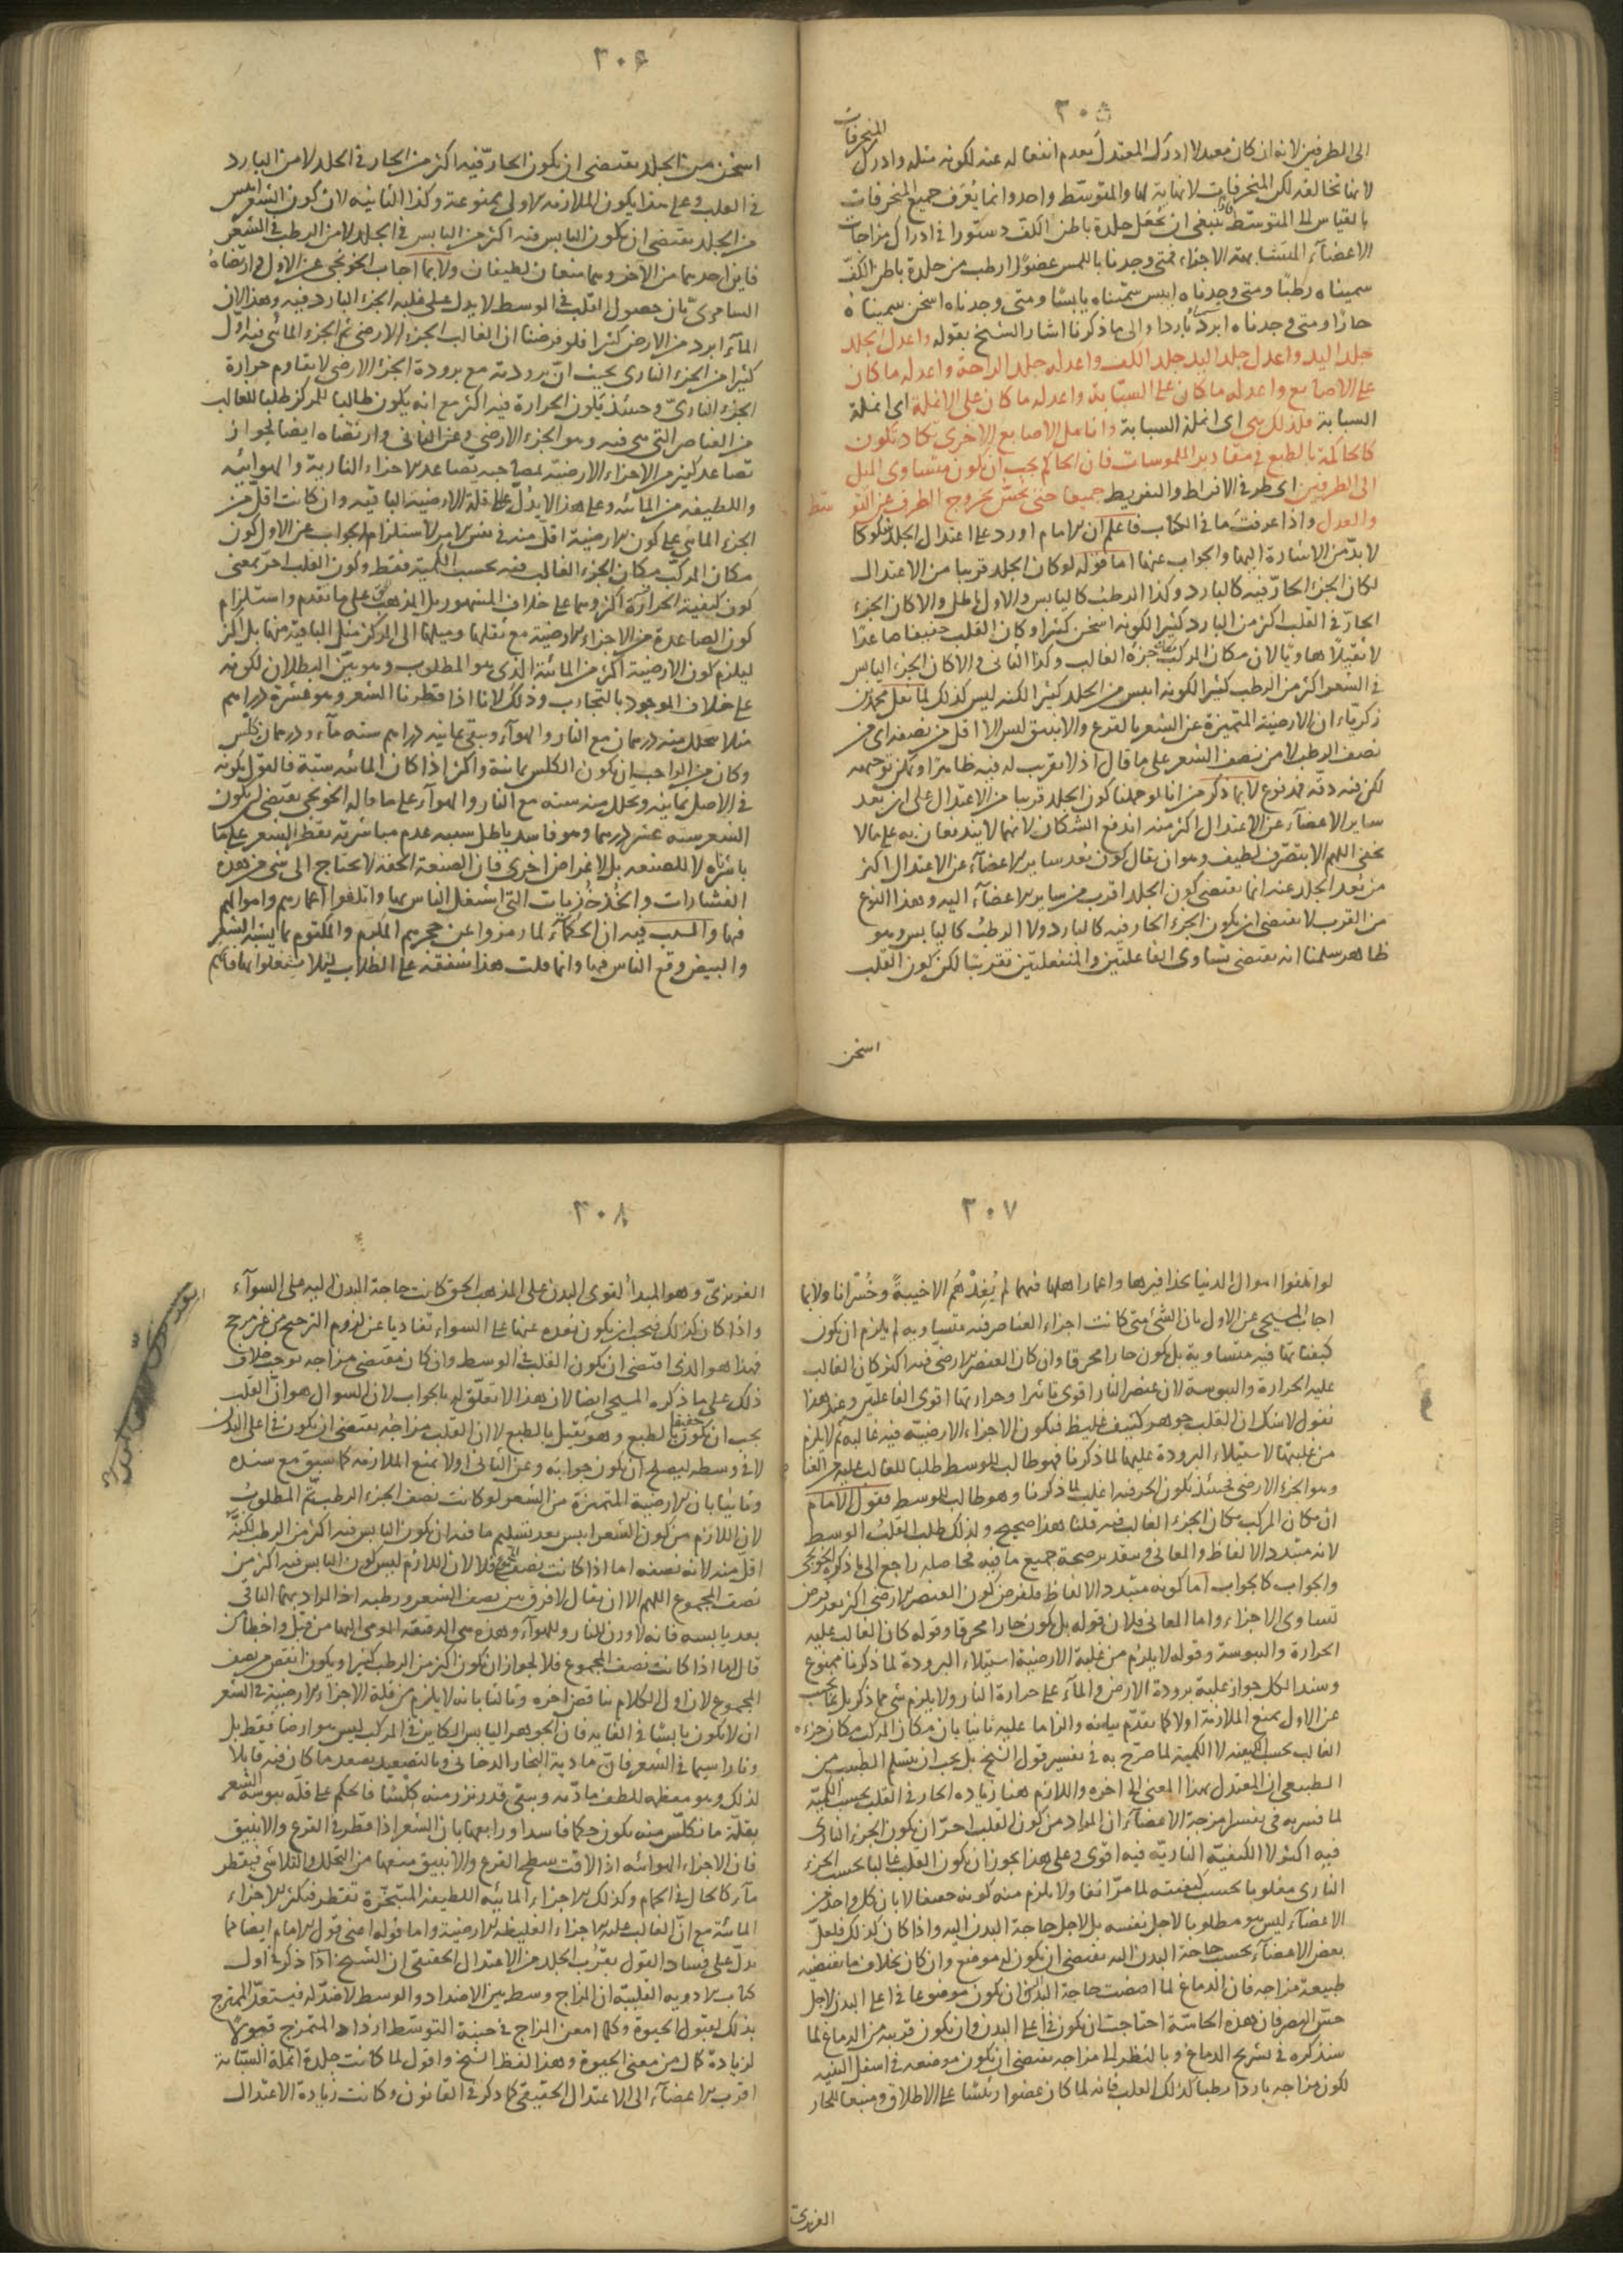 ٢٠٥
المنحرفات
الى الطرفين لانه ان كان معتدلا ادرك المعتدل بعدم انفعاله عنه لكونه مثله وادرك
لانها تخالفه لكن المنحرفات لا نهاية لها والمتوسط واحد وانما يعرف جميع المنحرفات
بالقياس الى المتوسط فاذا ينبغى ان تجعل جلدة باطن الكف دستورا فى ادراك مزاجات
الاعضاء المتشابهة الاجزاء فمتى وجدنا باللمس عضوا ارطب من جلدة باطن الكف
سميناه رطبا ومتى وجدناه ايبس سميناه يابسا ومتى وجدناه اسخن سميناه
حارا ومتى وجدناه ابرد باردا والى ما ذكرنا اشار الشيخ بقوله واعدل الجلد
جلد اليد واعدل جلد اليد جلد الكف واعدله جلد الراحة واعدله ما كان
على الاصابع واعدله ما كان على السبابة واعدله ما كان على الانملة اى انملة
السبابة فلذلك هى اى انملة السبابة وانامل الاصابع الاخرى تكاد تكون
كالحاكمة بالطبع فى مقادير الملموسات فان الحاكم يجب ان يكون متساوى الميل
الى الطرفين اى طرفى الافراط والتفريط جميعا حتى يحس بخروج الطرف عن التوسط
والعدل واذا عرفت ما فى الكتاب فاعلم ان الامام اورد على اعتدال الجلد شكوكا
لا بد من الاشارة اليها والجواب عنها اما قوله لو كان الجلد قريبا من الاعتدال
لكان الجزء الحار فيه كالبارد وكذا الرطب كاليابس والاول باطل والا كان الجزء
الحار فى القلب اكثر من البارد كثيرا لكونه اسخن كثيرا وكان القلب خفيفا صاعدا
لا ثقيلا هاويا لان مكان المركب مكان جزءه الغالب وكذا الثانى والا كان الجزء اليابس
فى الشعر اكثر من الرطب كثيرا لكونه ايبس من الجلد كثيرا لكنه ليس كذلك لما نقل محمد بن
زكرياء ان الارضية المتميزة عن الشعر بالقرع والانبيق ليس الا اقل من نصفه اى من
نصف الرطب لا من نصف الشعر على ما قال اذ لا تقريب له فيه ظاهرا ويمكن توجيهه
لكن فيه دقة فمدفوع لا بما ذكر من انا لو حملنا كون الجلد قريبا من الاعتدال على ان بعد
ساير الاعضاء عن الاعتدال اكثر منه اندفع الشكان لانهما لا يندفعان به على ما لا
يخفى اللهم الا بتصرف لطيف وهو ان يقال كون بعد ساير الاعضاء عن الاعتدال اكثر
من بعد الجلد عنه انما يقتضى كون الجلد اقرب من ساير الاعضاء اليه وهذا النوع
من القرب لا يقتضى ان يكون الجزء الحار فيه كالبارد ولا الرطب كاليابس وهو
ظاهر سلمنا انه يقتضى تساوى الفاعلتين والمنفعلتين تقريبا لكن كون القلب
اسخن
٢٠٦
اسخن من الجلد يقتضى ان يكون الحار فيه اكثر من الحار فى الجلد لا من البارد
فى القلب وعلى هذا يكون الملازمة الاولى ممنوعة وكذا الثانية لان كون الشعر ايبس
من الجلد يقتضى ان يكون اليابس فيه اكثر من اليابس فى الجلد لا من الرطب فى الشعر
فاين احدهما من الآخر وهما منعان لطيفان ولا بما اجاب الخونجى عن الاول وارتضاه
السامرى بان حصول القلب فى الوسط لا يدل على غلبة الجزء البارد فيه وهذا لان
الماء ابرد من الارض كثيرا فلو فرضنا ان الغالب الجزء الارضى ثم الجزء المائى فيه اقل
كثيرا من الجزء النارى بحيث ان برودته مع برودة الجزء الارضى لا تقاوم حرارة
الجزء النارى وحينئذ يكون الحرارة فيه اكثر مع انه يكون طالبا للمركز طلبا للغالب
من العناصر التى هى فيه وهو الجزء الارضى وعن الثانى وارتضاه ايضا بجواز
تصاعد كثير من الاجزاء الارضية لمصاحبه تصاعد الاجزاء النارية والهوائية
واللطيفة من المائية وعلى هذا لا يدل على قلة الارضية الباقية وان كانت اقل من
الجزء المائى على كون الارضية اقل منه فى نفس الامر لاستلزام الجواب عن الاول كون
مكان المركب مكان الجزء الغالب فيه بحسب الكمية فقط وكون القلب احر بمعنى
كون كيفية الحرارة اكثر وهما على خلاف المشهور بل المذهب على ما تقدم واستلزام
كون الصاعدة من الاجزاء الارضية مع ثقلها وميلها الى المركز مثل الباقية منها بل اكثر
ليلزم كون الارضية اكثر من المائية الذى هو المطلوب وهو بين البطلان لكونه
على خلاف الموجود بالتجارب وذلك لانا اذا قطرنا الشعر وهو عشرة دراهم
مثلا تحلل منه درهمان مع النار والهواء وبقى ثمانية دراهم ستة ماء ودرهمان كلس
وكان من الواجب ان يكون الكلس ثمانية واكثر اذا كان المائية ستة فالقول بكونه
فى الاصل ثمانية وتحلل منه ستة مع النار والهواء على ما قاله الخونجى يقتضى ان يكون
الشعر ستة عشر درهما وهو فاسد باطل سببه عدم مباشرته تقطير الشعر على ما
باشرناه لا للصنعة بل لاغراض اخرى فان الصنعة الحقة لا تحتاج الى شىء من هذه
الفشارات والخذخذيات التى اشتغل الناس بها واتلفوا اعمارهم واموالهم
فيها والسبب فيه ان الحكماء لما رمزوا عن حجرهم المكرم والمكتوم بما يشبه الشعر
والبيض وقع الناس فيها وانما قلت هذا شفقة على الطلاب لئلا يشتغلوا بها فانهم
٢٠٧
لو اتلفوا اموال الدنيا بحذافيرها واعمار اهلها فيهما لم يفدهم الا خيبة وخسرانا ولا بما
اجاب المسيحى عن الاول بان الشىء متى كانت اجزاء العناصر فيه متساوية لم يلزم ان يكون
كيفياتها فيه متساوية بل يكون حارا محرقا وان كان العنصر الارضى فيه اكثر كان الغالب
عليه الحرارة واليبوسة لان عنصر النار اقوى تاثيرا وحرارتها اقوى الفاعلتين وعند هذا
نقول لا شك ان القلب جوهر كثيف غليظ فيكون الاجزاء الارضية فيه غالبة ثم لا يلزم
من غلبتها استيلاء البرودة عليها لما ذكرنا فهو طالب للوسط طلبا للغالب عليه من العناصر
وهو الجزء الارضى فحينئذ يكون الحر فيه اغلب لما ذكرنا وهو طالب للوسط فقول الامام
ان مكان المركب مكان الجزء الغالب فيه قلنا هذا صحيح ولذلك طلب القلب الوسط
لانه متبدد الالفاظ والمعانى وبتقدير صحة جميع ما فيه فحاصله راجع الى ما ذكره الخونجى
والجواب كالجواب اما كونه متبدد الالفاظ فلفرض كون العنصر الارضى اكثر بعد فرض
تساوى الاجزاء واما المعانى فلان قوله بل يكون حارا محرقا وقوله كان الغالب عليه
الحرارة واليبوسة وقوله لا يلزم من غلبة الارضية استيلاء البرودة لما ذكرنا ممنوع
وسند الكل جواز غلبة برودة الارض والماء على حرارة النار ولا يلزم شىء مما ذكر بل نجيب
عن الاول بمنع الملازمة اولا كما تقدم بيانه والزاما عليه ثانيا بان مكان المركب مكان جزءه
الغالب بحسب الكيفية لا الكمية لما صرح به فى تفسير قول الشيخ بل يجب ان يتسلم الطبيب من
الطبيعى ان المعتدل بهذا المعنى الى اخره واللازم هنا زيادة الحار فى القلب بحسب الكمية
لما فسر به فى تفسير امزجة الاعضاء ان المراد من كون القلب احر ان يكون الجزء النارى
فيه اكثر لا الكيفية النارية فيه اقوى وعلى هذا يجوز ان يكون القلب غالبا بحسب الجزء
النارى مغلوبا بحسب كيفيته لما مر آنفا ولا يلزم منه كونه خفيفا لا بان كل واحد من
الاعضاء ليس هو مطلوبا لاجل نفسه بل لاجل حاجة البدن اليه واذا كان كذلك فلعل
بعض الاعضاء بحسب حاجة البدن اليه يقتضى ان يكون له موضع وان كان بخلاف ما تقتضيه
طبيعة مزاجه فان الدماغ لما اقتضت حاجة البدن ان يكون موضوعا فى اعلى البدن لاجل
حس البصر فان هذه الحاسة احتاجت ان يكون فى اعلى البدن وان يكون قريبة من الدماغ لما
سنذكره فى تشريح الدماغ وبالنظر الى مزاجه يقتضى ان يكون موضعه فى اسفل البنية
لكون مزاجه باردا رطبا كذلك القلب فانه لما كان عضوا رئيسا على الاطلاق ومنبعا للحار
الغريزى
٢٠٨
الغريزى وهو المبدأ لقوى البدن على المذهب الحق كانت حاجة البدن اليه على السوآء
واذا كان كذلك فيجب ان يكون بعده عنها على السواء تفاديا عن لزوم الترجيح من غير مرجح
فهذا هو الذى اقتضى ان يكون القلب فى الوسط وان كان مقتضى مزاجه توجب خلاف
ذلك على ما ذكره المسيحى ايضا لان هذا لا تعلق له بالجواب لان السوال هو ان القلب
يجب ان يكون خفيفا بالطبع وهو ثقيل بالطبع لا ان القلب مزاجه يقتضى ان يكون فى اعلى البدن
لا فى وسطه ليصلح ان يكون جوابه وعن الثانى اولا بمنع الملازمة كما سبق مع سنده
وثانيا بان الارضية المتميزة من الشعر لو كانت نصف الجزء الرطب تم المطلوب
لان اللازم من كون الشعر ايبس بعد تسليم ما فيه ان كون اليابس فيه اكثر من الرطب لكنه
اقل منه لانه نصفه اما اذا كانت نصف المجموع فلا لان اللازم ليس كون اليابس فيه اكثر من
نصف المجموع اللهم الا ان يقال لا فرق بين نصف الشعر ورطبه اذ المراد بهما الباقى
بعد يابسه فانه لا وزن للنار وللهوآء وهذه هى الدقيقة المومى اليها من قبل واخطأ من
قال اما اذا كانت نصف المجموع فلا لجواز ان يكون اكثر من الرطب كثيرا ويكون انقص من نصف
المجموع لان اول الكلام يناقض اخره وثالثا بانه لا يلزم من قلة الاجزاء الارضية فى الشعر
ان لا يكون يابسا فى الغاية فان الجوهر اليابس الكاين فى المركب ليس هو ارضا فقط بل
ونارا سيما فى الشعر فان مادته البخار الدخانى وبالتصعيد يصعد ما كان فيه قابلا
لذلك وهو معظمه للطف مادته ويبقى قدر نزر منه كلسا فالحكم على قلة يبوسة الشعر
بقلة ما تكلس منه يكون حكما فاسدا ورابعها بان الشعر اذا قطر فى القرع والانبيق
فان الاجزاء الهوائية اذا لاقت سطح القرع والانبيق منعها من التحلل والتلاشى فيقطر
ماء كالحال فى الحمام وكذلك الاجزاء المائية اللطيفة المتبخرة تقطر فيكثر الاجزاء
المائية مع ان الغالب عليه الاجزاء الغليظة الارضية واما قوله اعنى قول الامام ايضا مما
يدل على فساد القول بقرب الجلد من الاعتدال الحقيقى ان الشيخ اذا ذكر فى اول
كتاب الادوية القلبية ان المزاج وسط بين الاضداد والوسط لا ضد له فيستعد الممتزج
بذلك لقبول الحيوة وكلما امعن المزاج فى جنبة التوسط ازداد الممتزج قبولا
لزيادة كمال من معنى الحيوة وهذا لفظ الشيخ واقول لما كانت جلدة انملة السبابة
اقرب الاعضاء الى الاعتدال الحقيقى كما ذكر فى القانون وكانت زيادة الاعتدال